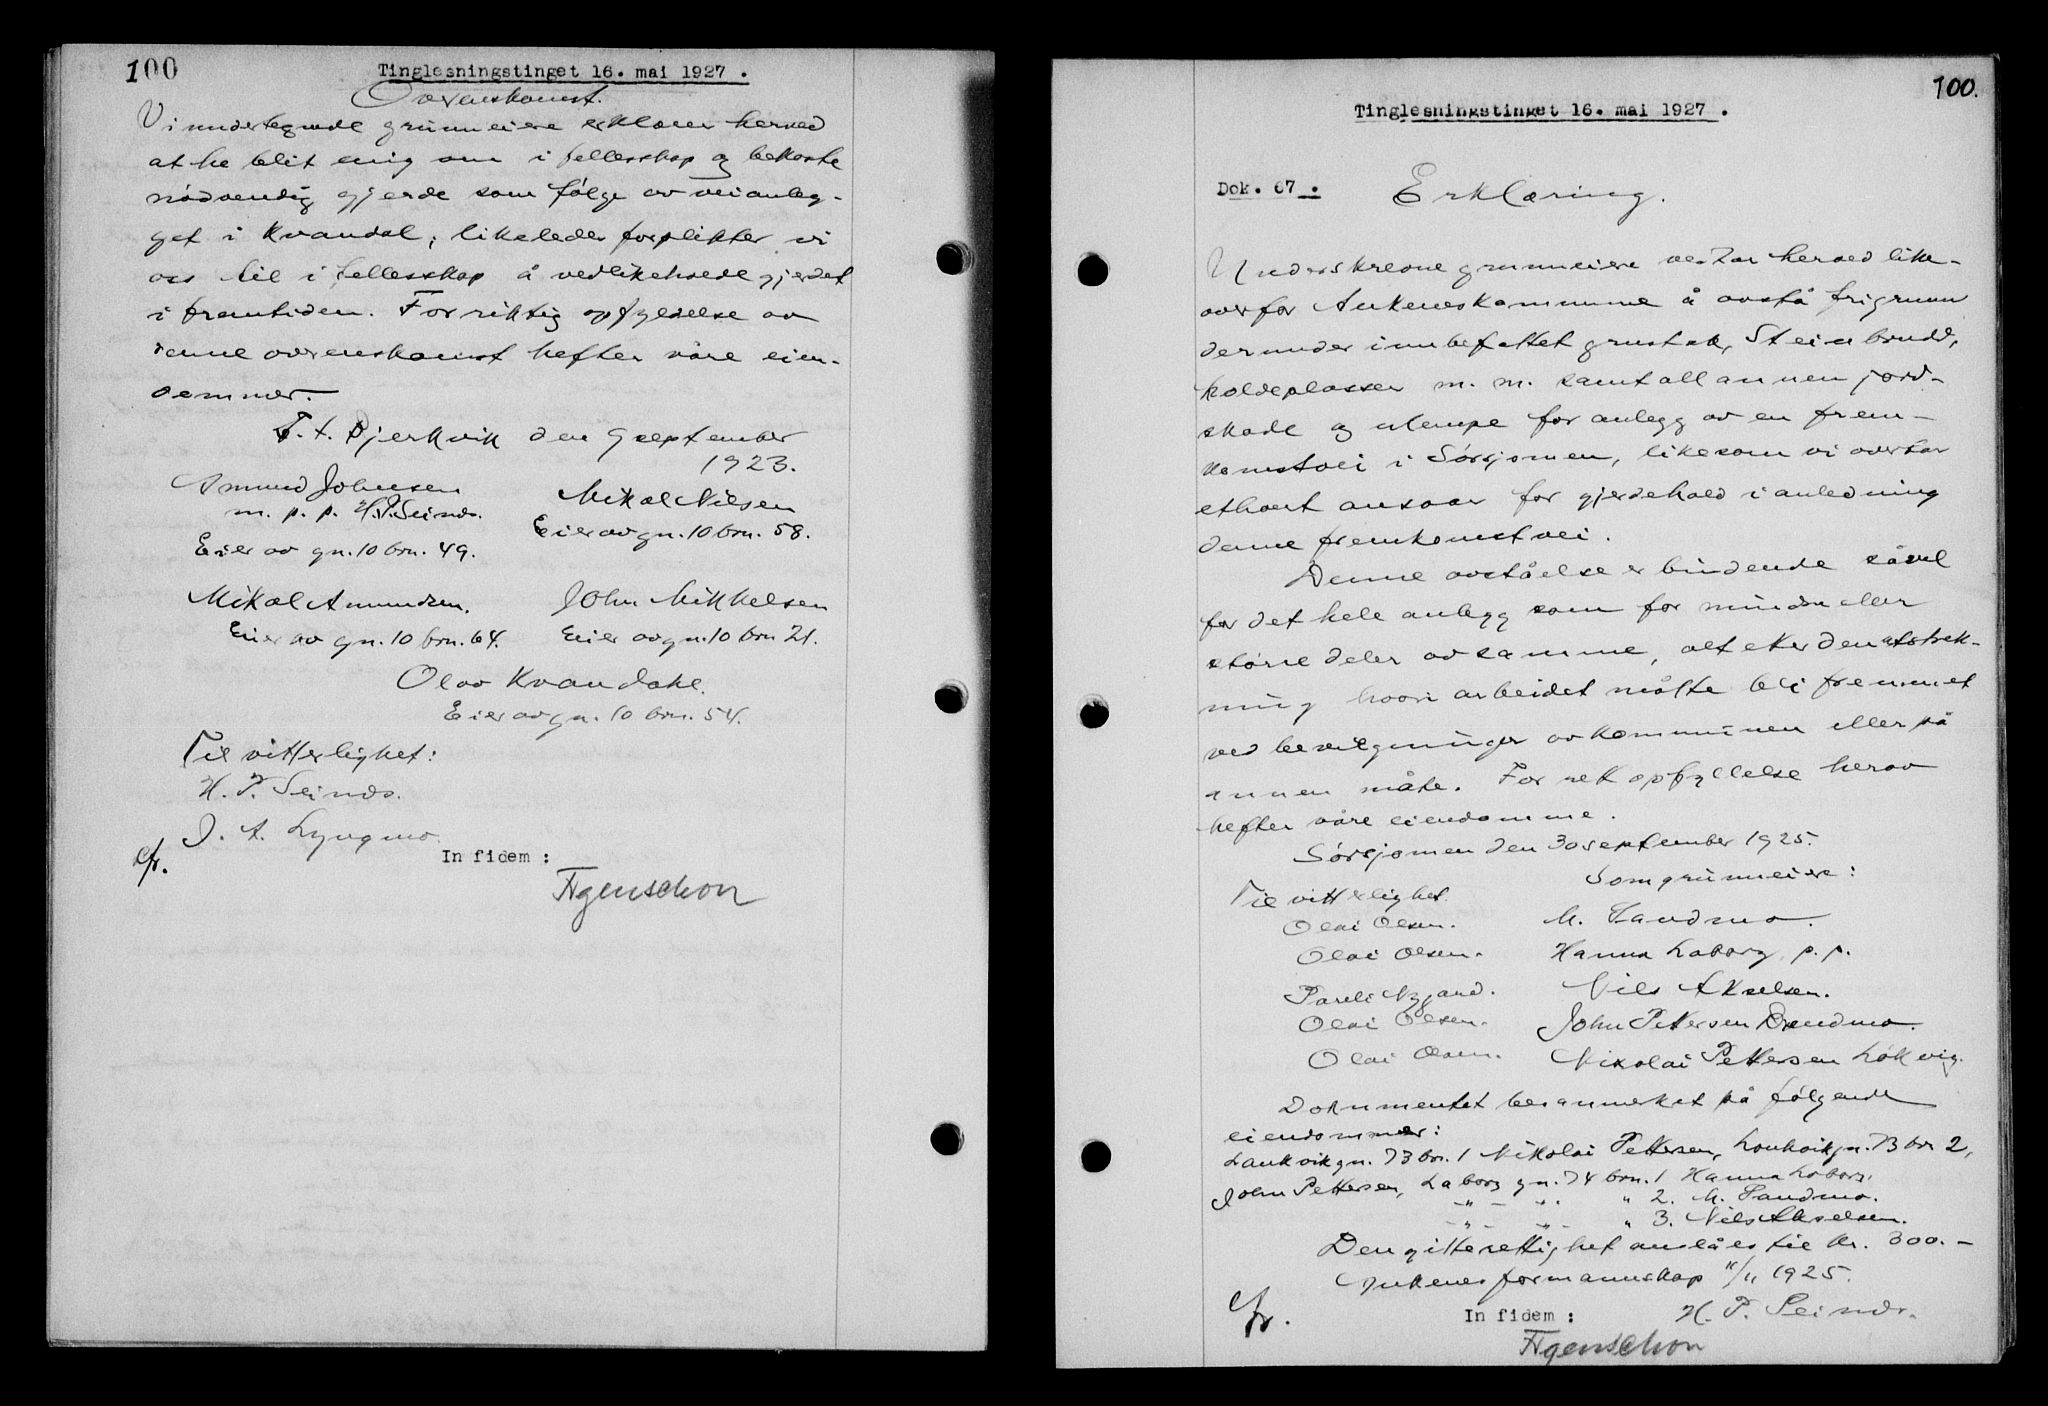 100
Tinglesningstinget 16. mai 1927.
Overenskomst.
Vi undertegnede grunneiere erklærer herved
at ha blit enig om i fellesskap og bekoste
nødvendig gjerde som følge av veianleg-
get i Kvandal, likeledes forplikter vi
oss til i fellesskap å vedlikeholde gjerdet
i fremtiden. For riktig opfyldelse av
denne overenskomst hefter våre eien-
dommer.
F. t. Bjerkvik den 9 september
1923.
Amund Johnsen
m. p. p. H. P. Seines.
Eier av gn. 10 brn. 49.
Mikal Nilsen
Eier av gn. 10 brn. 58.
Mikal Amundsen.
Eier av gn. 10 brn. 64.
John Mikkelsen
Eier av gn. 10 brn 21.
Olav Kvandahl.
Eier av gn. 10 brn. 54.
Til vitterlighet:
H. P. Seines.
J. A. Lyngmo.
In fidem:
Agenschon
100.
Tinglesningstinget 16. mai 1927.
Dok. 67.
Erklæring.
Underskrevne grunneiere vedtar herved like-
overfor Ankenes kommune å avstå fri grunn
derunder innbefattet grustak, Steinbrudd,
holdeplasser m. m. samt all annen jord-
skade og ulempe for anlegg av en frem-
komstvei i Sørsjomen, likesom vi overtar
ethvert ansvar for gjerdehold i anledning
denne fremkomstvei.
Denne avståelse er bindende såvel
for det hele anlegg som for mindre eller
større deler av samme, alt etter den utstrek-
ning hvori arbeidet måtte bli fremmet
ved bevilgninger av kommunen eller på
annen måte. For rett opfyllelse herav
hefter våre eiendomme.
Sørsjomen den 30 september 1925.
Til vitterlighet. Som grunneiere:
Olai Olsen. M. Sandmo.
Olai Olsen. Hanna Laberg, p. p.
Pareli Nygård. Nils Akselsen.
Olai Olsen. John Pettersen
Olai Olsen. Nikolai Pettersen Løkvig.
Dokumentet bes anmerket på følgende
eiendommer:
Lankvik gn. 73 bn. 1 Nikolai Pettersen, Lankvik gn. 73 bn 2,
John Pettersen, Laberg gn. 74 brn. 1 Hanna Laberg.
-"- -"- " 2. M. Sandmo.
-"- -"- " 3. Nils Akselsen.
Den gitte rettighet anslåes til kr. 300.-
Ankenes formannskap 11/11 1925.
In fidem: H. P. Seines.
Agenschon